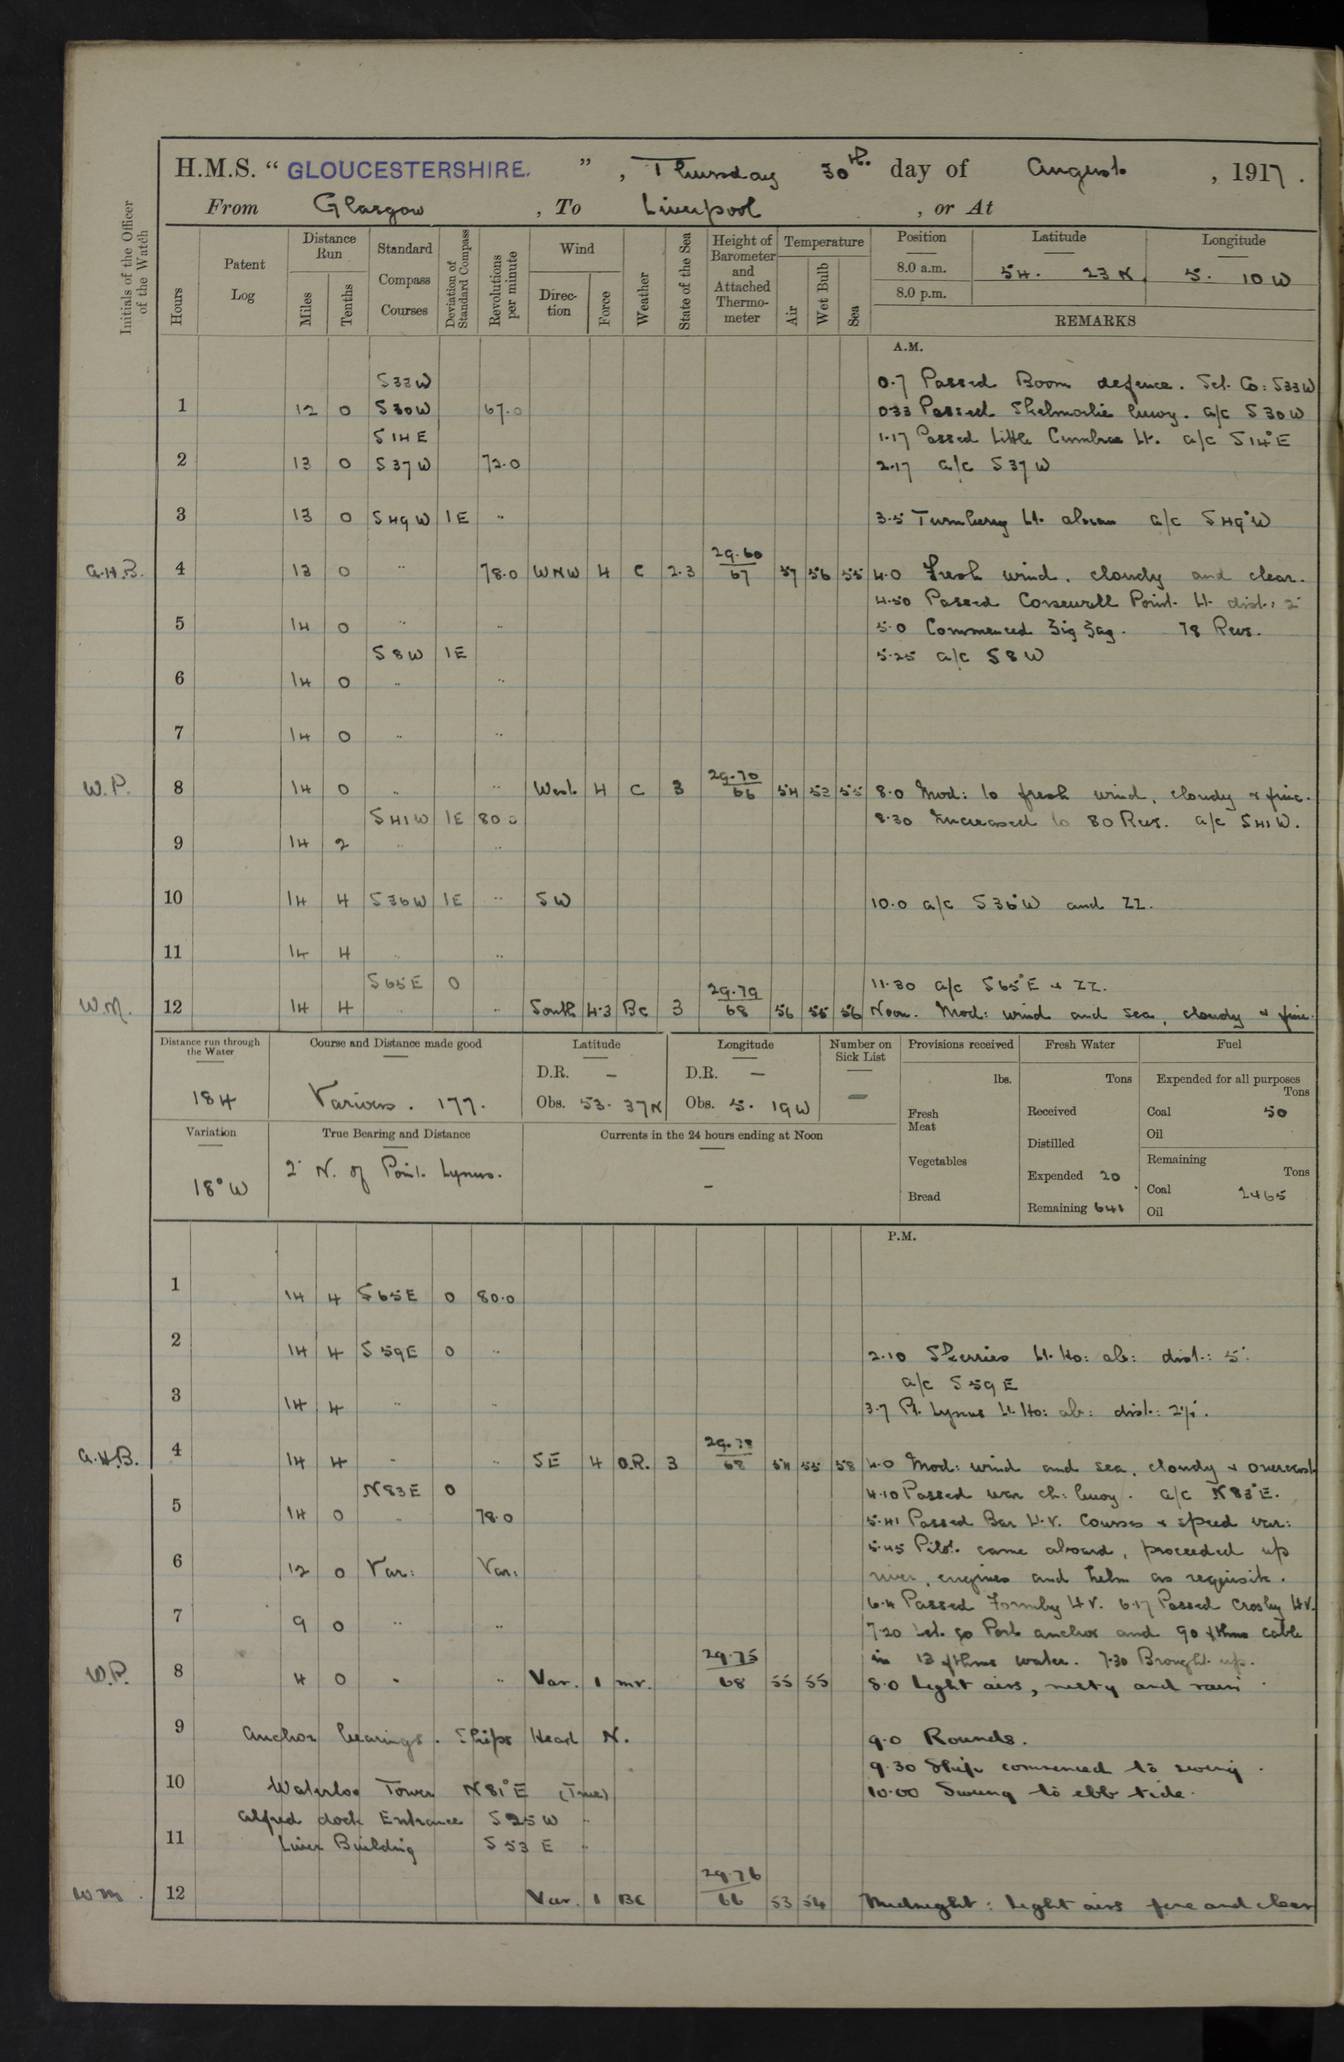 H.M.S. “ GLOUCESTERSHIRE. ” , Thursday 30th. day of August , 1917 .
From Glasgow , To Liverpool , or At
Initials of the Officer of the Watch
Hours Patent Log Distance Run Miles Tenths Standard Compass Courses Deviation of Standard Compass Revolutions per minute Wind Direction Force Weather State of the Sea Height of Barometer and Attached Thermometer Temperature Air Wet Bulb Sea Position Latitude Longitude
8.0 a.m. 54. 23 N. 5. 10 W
8.0 p.m.
REMARKS
A.M.
S33W 0.7 Passed Boom defence. Set Co: S33W
1 12 0 S30W 67.0 033 Passed Skelmorlie buoy. a/c S30W
S14E 1.17 Passed Little Cumbrae Lt. a/c S14°E
2 13 0 S37W 72.0 2.17 a/c S37W
3 13 0 S49W 1E " 3.5 Turnberry Lt. abeam a/c S49°W
A.H.B. 4 13 0 " 78.0 WNW 4 C 2.3 29.60/67 57 56 55 4.0 Fresh wind, cloudy and clear.
4.50 Passed Corsewall Point Lt dist: 2'
5 14 0 " " 5.0 Commenced Zig Zag. 78 Revs.
S8W 1E 5.25 a/c S8W
6 14 0 " "
7 14 0 " "
W.P. 8 14 0 " " West 4 C 3 29.70/66 54 53 55 8.0 Mod: to fresh wind, cloudy & fine.
S41W 1E 80.0 8.30 Increased to 80 Revs. a/c S41W.
9 14 2 " "
10 14 4 S36W 1E " SW 10.0 a/c S36°W and ZZ.
11 14 4 " "
S65E 0 11.30 a/c S65°E & ZZ.
W.M. 12 14 4 " " South 4.3 Bc 3 29.79/68 56 55 56 Noon. Mod: wind and sea, cloudy & fine.
Distance run through the Water Course and Distance made good Latitude Longitude Number on Sick List Provisions received Fresh Water Fuel
D.R. — D.R. — lbs. Tons Expended for all purposes Tons
184 Various. 177. Obs. 53. 37N Obs. 5. 19W — Fresh Meat Received Coal 50
Oil
Variation True Bearing and Distance Currents in the 24 hours ending at Noon Distilled
Vegetables Remaining Tons
18°W 2' N. of Point Lynus. - Expended 20 Coal 2465
Bread Remaining 641 Oil
P.M.
1 14 4 S65E 0 80.0
2 14 4 S59E 0 " 2.10 Skerries Lt. Ho: ab: dist: 5'.
a/c S59E
3 14 4 " " 3.7 Pt. Lynus Lt. Ho: ab: dist: 2½'.
A.H.B. 4 14 4 " " SE 4 O.R. 3 29.78/68 54 55 58 4.0 Mod: wind and sea, cloudy & overcast
N83E 0 4.10 Passed war ch: buoy. a/c N83°E.
5 14 0 " 78.0 5.41 Passed Bar L.V. Courses & speed var:
5.45 Pilot came aboard, proceeded up
6 12 0 Var: Var: river, engines and helm as requisite.
6.4 Passed Formby L.V. 6.17 Passed Crosby L.V.
7 9 0 " " 7.20 Let go Port anchor and 90 fthms cable
in 13 fthms water. 7.30 Brought up.
W.P. 8 4 0 " " Var. 1 mr. 29.75/68 55 55 8.0 Light airs, misty and rain.
9 Anchor bearings. Ships Head N. 9.0 Rounds.
9.30 Ship commenced to swing.
10 Waterloo Tower N81°E (True) 10.00 Swung to ebb tide.
Alfred dock Entrance S25W "
11 Liver Building S53E "
W.M. 12 Var. 1 BC 29.76/66 53 54 Midnight: Light airs fine and clear